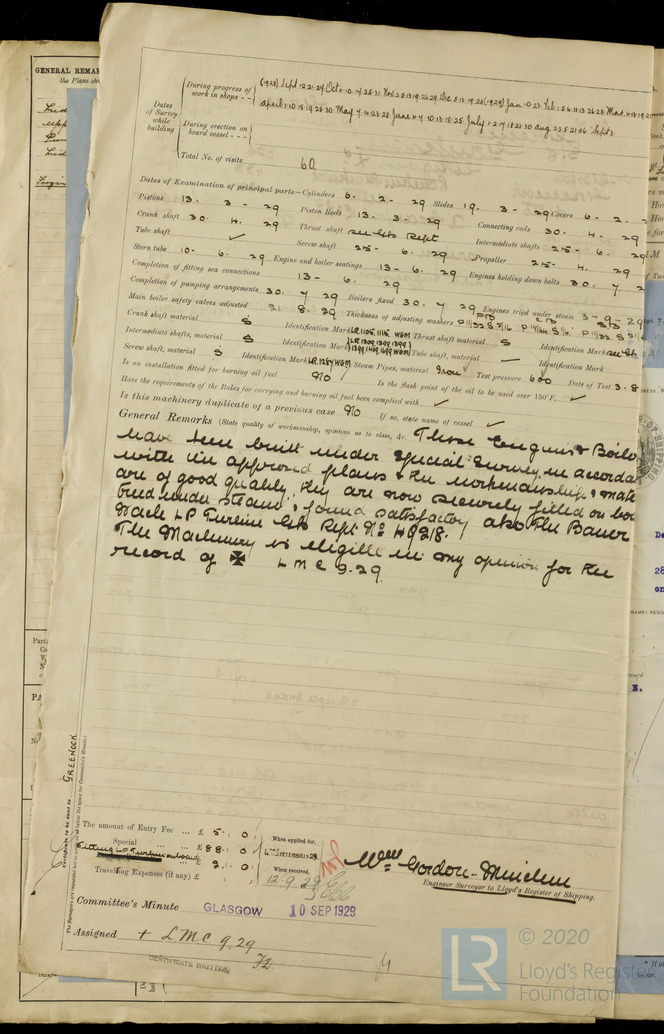 GENERAL REMAR
the Plans ab
Dates of Survey while building
During progress of work in shops - -
(1928) Sept 12.21.24 Oct 10.17.25.31 Nov 2.8.13.19.26.29 Dec 5.13.19.28 (1929) Jan 10.23 Feb 1.5.6.11.13.26.28 Mar
April 1.10.15.19.25.30 May 7.14.23.28 June 4.7.10.13.18.25 July 1.2.4.18.23.30 Aug 23.5.21.26 Sept 3.
During erection on board vessel - - -
Total No. of visits 60
Dates of Examination of principal parts—Cylinders 6. 2. 29 Slides 19. 3 - 29 Covers 6 - 2 -
Pistons 13. 3 - 29 Piston Rods 13. 3. 29 Connecting rods 30. 4. 29
Crank shaft 30. 4. 29 Thrust shaft see Gls Rept Intermediate shafts 25 - 6. 29
Tube shaft ✓ Screw shaft 25 - 6. 29 Propeller 25 - 4. 29
Stern tube 10 - 6. 29 Engine and boiler seatings 13 - 6. 29 Engines holding down bolts 30. 7. 2
Completion of fitting sea connections 13 - 6. 29
Completion of pumping arrangements 30. 7. 29 Boilers fixed 30. 7. 29 Engines tried under steam 3 - 9 - 29
Main boiler safety valves adjusted 21. 8. 29 Thickness of adjusting washers
Crank shaft material S Identification Mark LR 1105.1115 WGM Thrust shaft material S Identification Mark see Gls
Intermediate shafts, material S Identification Mark Tube shaft, material ✓ Identification Mark
Screw shaft, material S Identification Mark LR 1257 WGM Steam Pipes, material Iron Test pressure 600 Date of Test 3. 8
Is an installation fitted for burning oil fuel No Is the flash point of the oil to be used over 150°F. ✓
Have the requirements of the Rules for carrying and burning oil fuel been complied with ✓
Is this machinery duplicate of a previous case No If so, state name of vessel ✓
General Remarks (State quality of workmanship, opinions as to class, &c. These Engines & Boile
have been built under special survey in accorda
with the approved plans & the workmanship & mate
are of good quality, they are now securely fitted on boa
tried under steam & found satisfactory also the Bauer
Wach LP Turbine Gls Rept No 49218.
The Machinery is eligible in my opinion for the
record of ✠ LMC 9.29.
Certificate to be sent to GREENOCK
The amount of Entry Fee ... £ 5 : 0 :
Special ... £ 88 : 0 :
Fitting LP Turbine on board ... £ 2 : 0 :
Travelling Expenses (if any) £ : :
When applied for,
When received,
12.9.29
Wm Gordon-Muiclem
Engineer Surveyor to Lloyd's Register of Shipping.
Committee's Minute GLASGOW 10 SEP 1929
Assigned + LMC 9.29
CERTIFICATE WRITTEN
LR © 2020
Lloyd's Register
Foundation